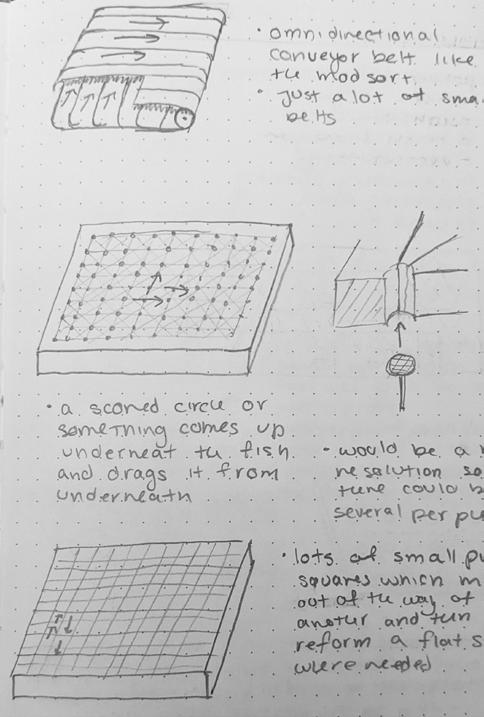 • omnidirectional
conveyor belt like
the modsort.
• Just a lot of
belts
• a scored circle or
something comes up
underneat the fish
and drags it from
underneath
- would be a
solution
could
several per
• lots of small
squares which
out of the way of
another and
reform a flat
where needed